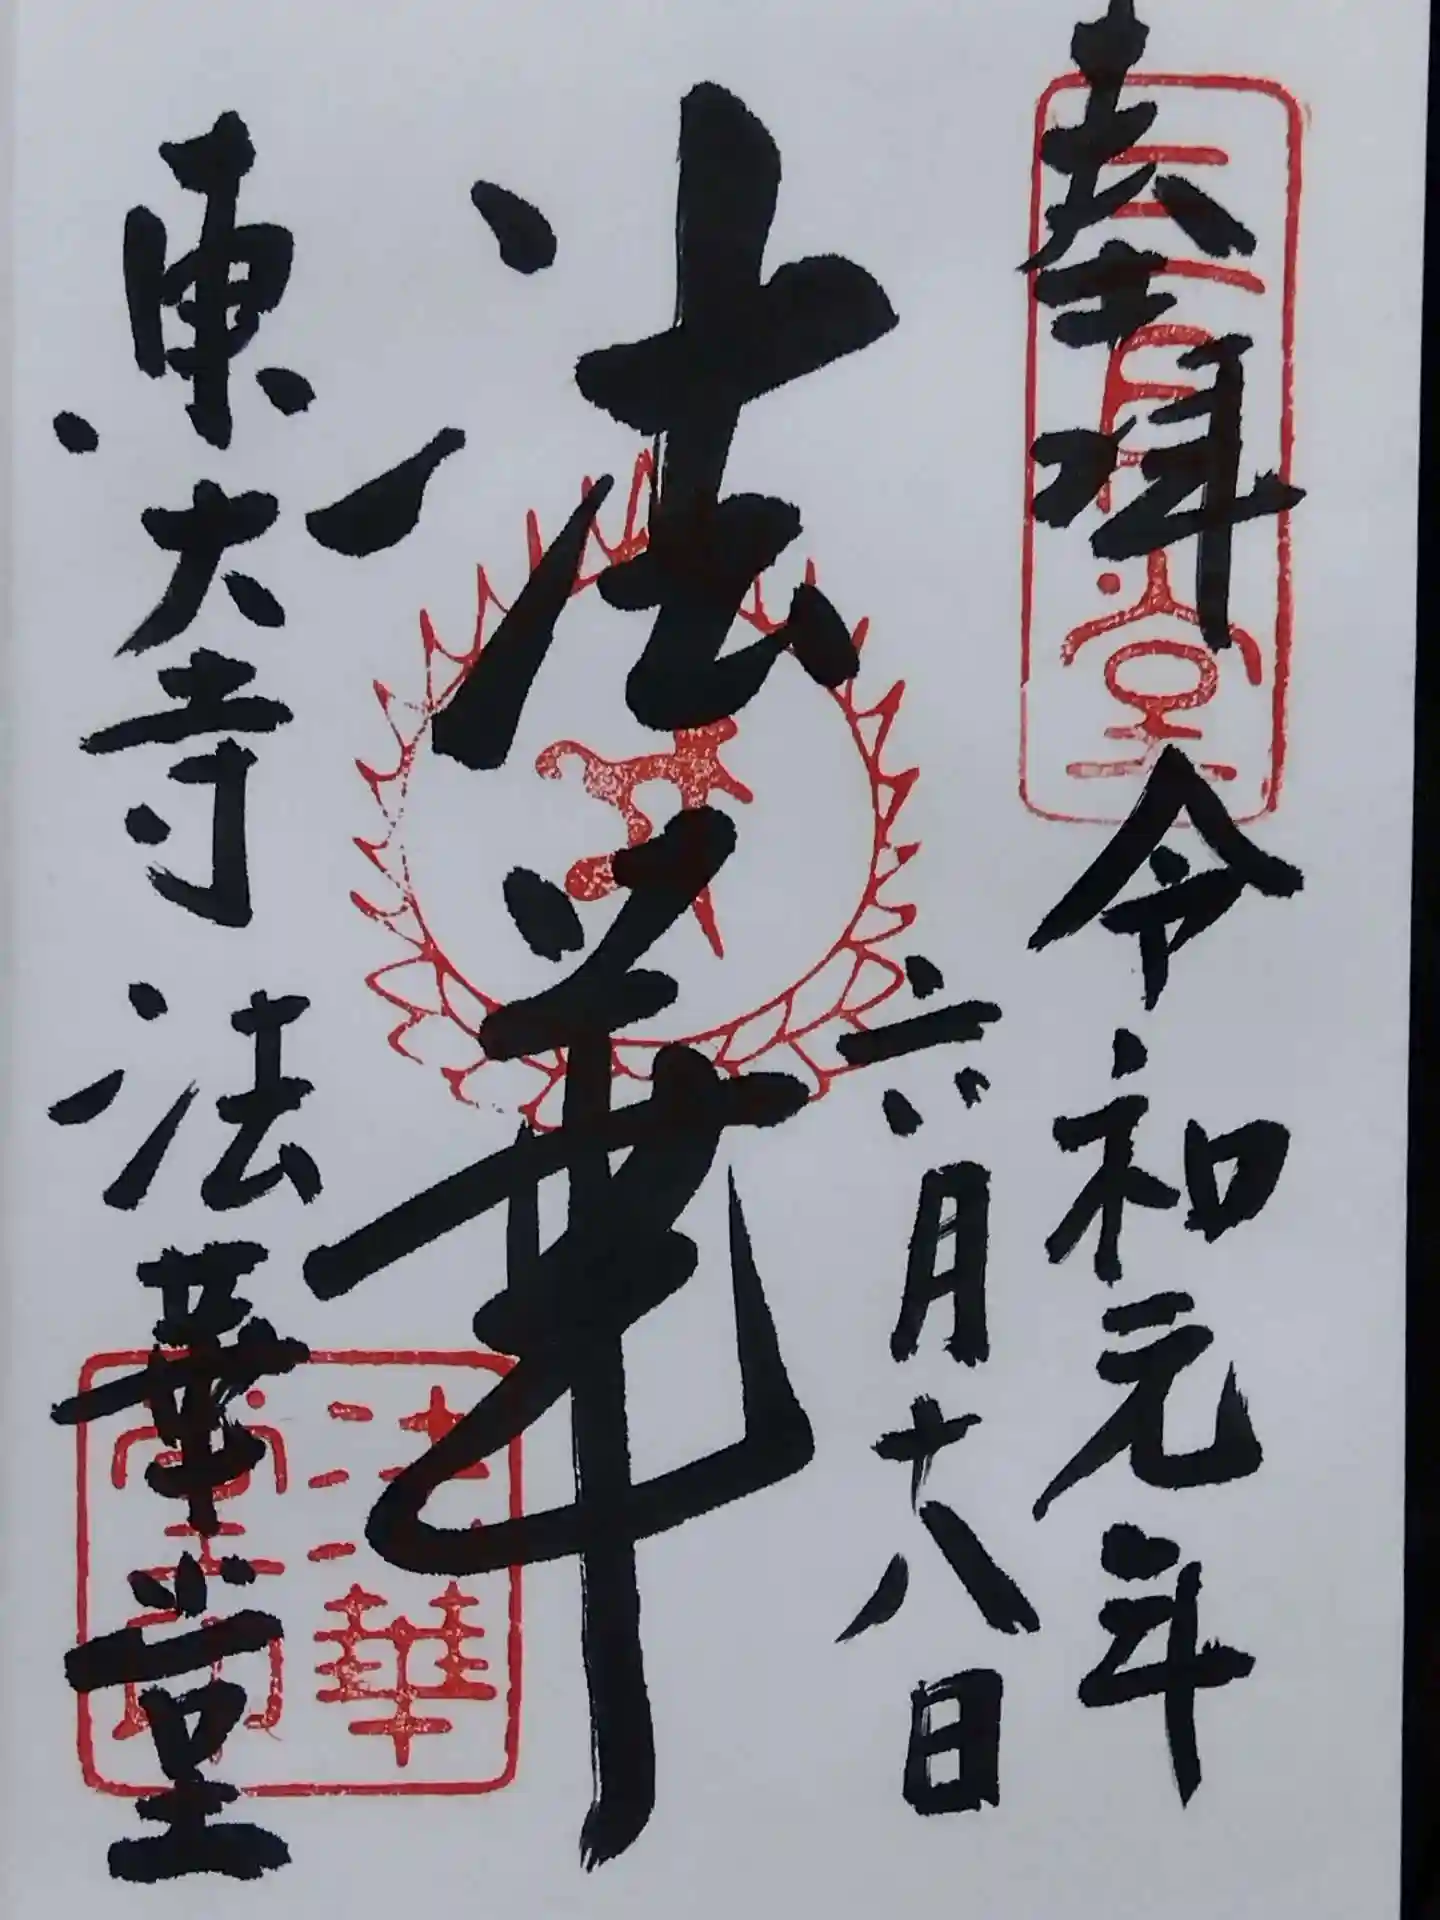 奉拝 令和元年
六月十八日
法華
東大寺 法華堂
三月堂
法華
堂印